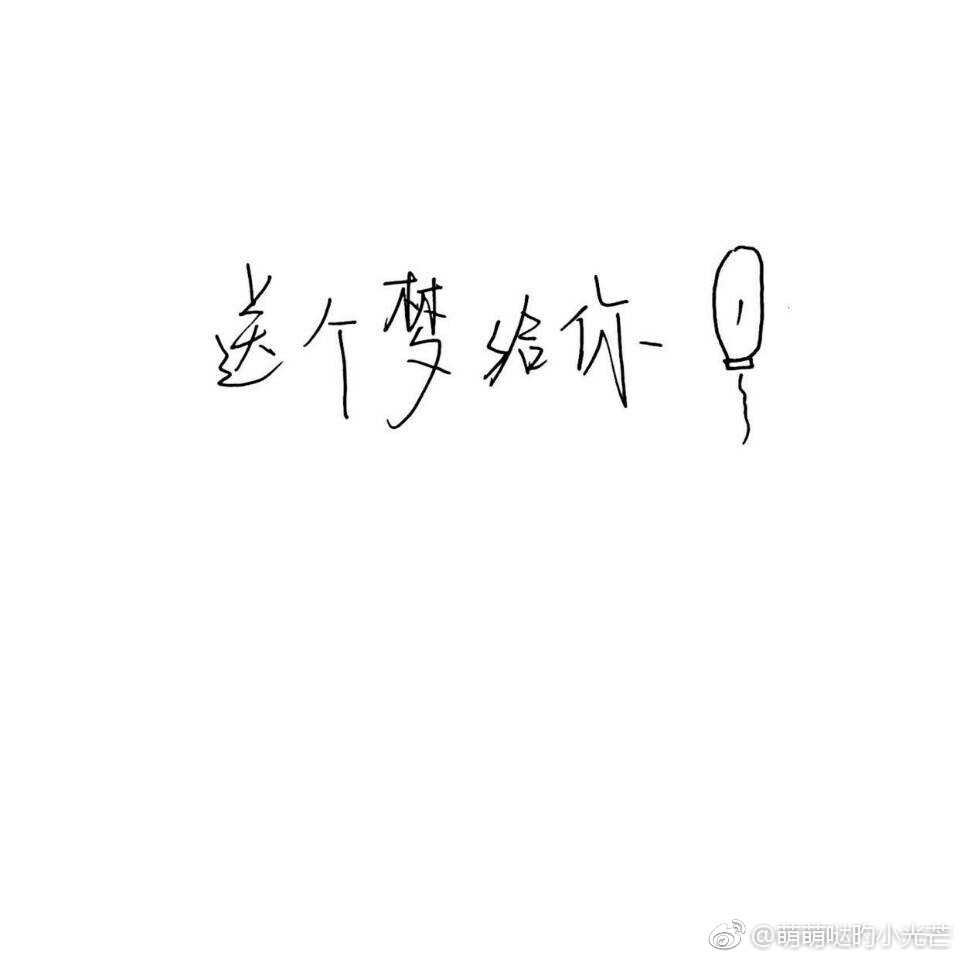 送个梦给你
@萌萌哒旳小光芒